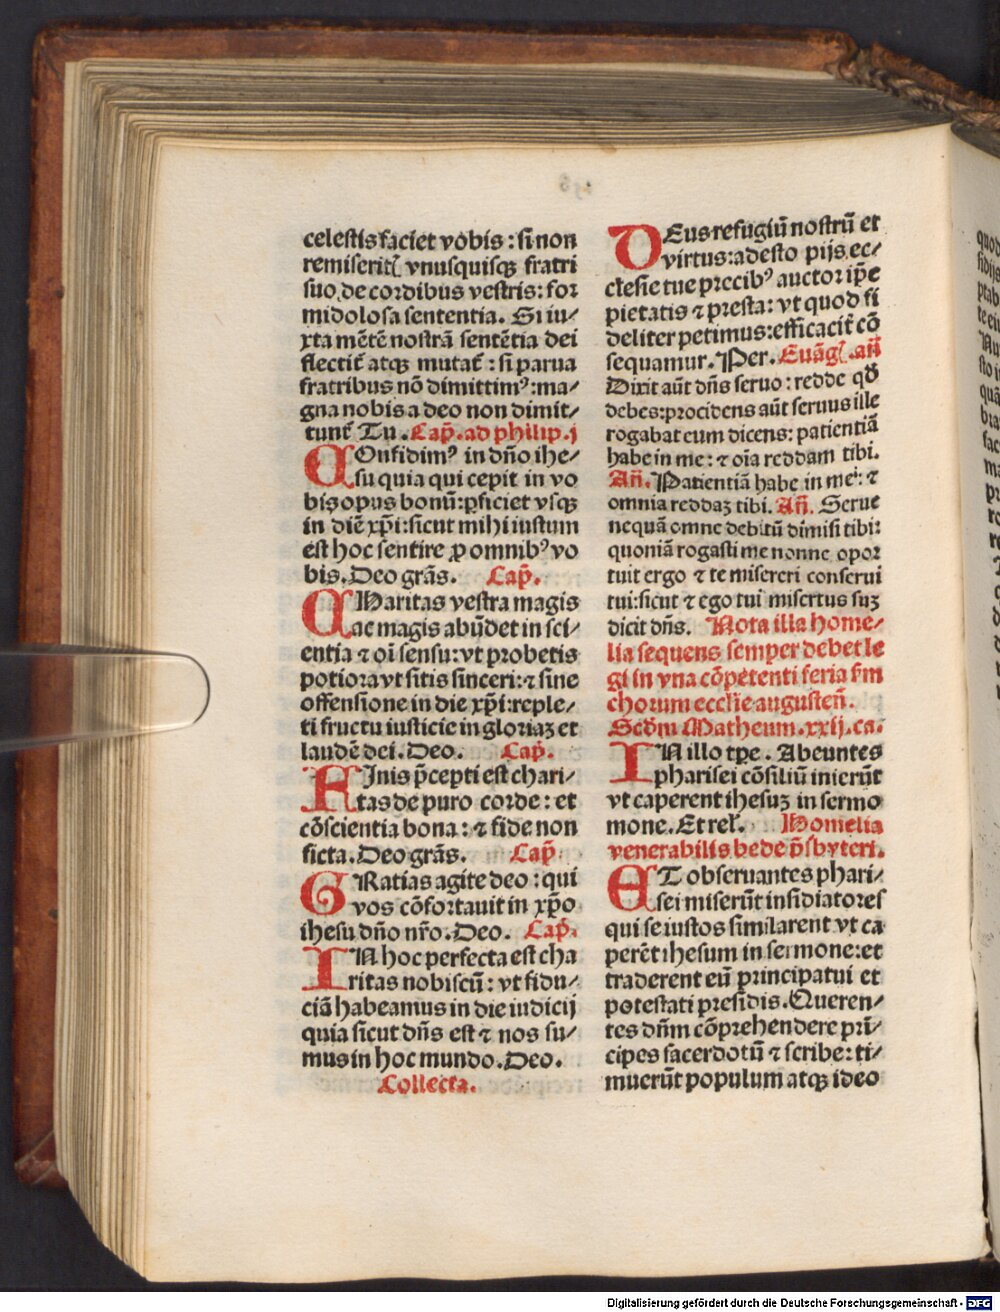 celestis faciet vobis : si non
remiserit͛ vnusquisqꝫ fratri
suo de cordibus vestris: for
midolosa sententia. Si iu⸗
xta mētē nostrā sentētia dei
flectit̄ atqꝫ mutat̄ : si parua
fratribus nō dimittimꝰ:ma⸗
gna nobis a deo non dimit⸗
tunt̄ Tu . Cap̄. ad philip. j
COnfidimꝰ in dn̄o ihe⸗
su quia qui cepit in vo
bis opus bonū: ꝑficiet vsqꝫ
in diē xp̄i: sicut mihi iustum
est hoc sentire ꝓ omnibꝰ vo
bis. Deo grās. Cap̄.
CHaritas vestra magis
ac magis abūdet in sci⸗
entia ⁊ oī sensu: vt probetis
potiora vt sitis sinceri: ⁊ sine
offensione in die xp̄i: reple⸗
ti fructu iusticie in gloriaꝫ et
laudē dei. Deo. Cap̄.
FInis p̄cepti est chari⸗
tas de puro corde: et
cōscientia bona: ⁊ fide non
ficta. Deo grās. Cap̄.
GRatias agite deo: qui
vos cōfortauit in xp̄o
ihesu dn̄o nr̄o. Deo. Cap̄.
IN hoc perfecta est cha
ritas nobiscū: vt fidu⸗
ciā habeamus in die iudicij
quia sicut dn̄s est ⁊ nos su⸗
mus in hoc mundo. Deo.
Collecta.
DEus refugiū nostrū et
virtus: adesto pijs ec⸗
clesie tue precibꝰ auctor ip̄e
pietatis ⁊ presta: vt quod fi
deliter petimus: efficacit̄ cō
sequamur. Per. Euāgl̄. an̄
Dixit aūt dn̄s seruo: redde qd̄
debes: procidens aūt seruus ille
rogabat eum dicens: patientiā
habe in me: ⁊ oīa reddam tibi.
An̄. Patientiā habe in me: ⁊
omnia reddaꝫ tibi. An̄. Serue
nequā omne debitū dimisi tibi:
quoniā rogasti me nonne opor
tuit ergo ⁊ te misereri conserui
tui: sicut ⁊ ego tui misertus suꝫ
dicit dn̄s. Nota illa home⸗
lia sequens semper debet le
gi in vna cōpetenti feria sm̄
chorum ecclie augusten̄.
Scd̄m Matheum. xxij. ca.
IN illo tp̄e. Abeuntes
pharisei cōsiliū inierūt
vt caperent ihesuꝫ in sermo
mone. Et rel̄. Homelia
venerabilis bede p̄sbyteri.
ET obseruantes phari⸗
sei miserūt insidiatores
qui se iustos similarent vt ca
perēt ihesum in sermone: et
traderent eū principatui et
potestati presidis. Queren⸗
tes dn̄m cōprehendere prī⸗
cipes sacerdotū ⁊ scribe: ti⸗
muerūt populum atqꝫ ideo
Digitalisierung gefördert durch die Deutsche Forschungsgemeinschaft - DFG